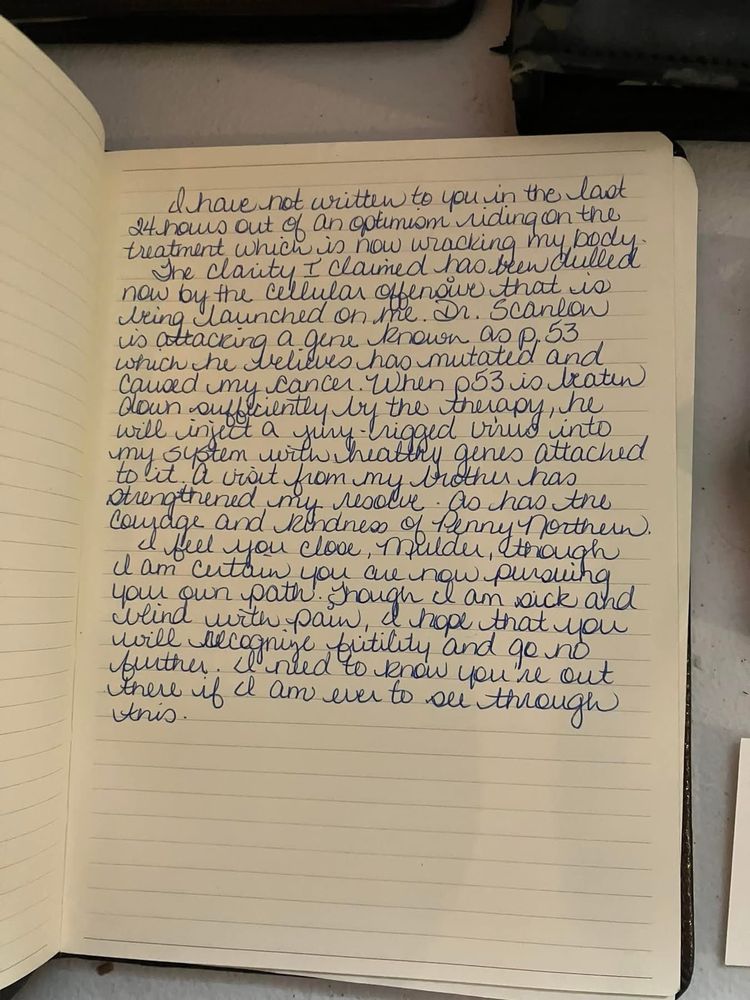 I have not written to you in the last
24 hours out of an optimism riding on the
treatment which is now wracking my body.
The clarity I claimed has been dulled
now by the cellular offensive that is
being launched on me. Dr. Scanlon
is attacking a gene known as p.53
which he believes has mutated and
caused my cancer. When p53 is beaten
down sufficiently by the therapy, he
will inject a jury-rigged virus into
my system with healthy genes attached
to it. A visit from my brother has
strengthened my resolve. As has the
courage and kindness of Penny Northern.
I feel you close, Mulder, though
I am certain you are now pursuing
your own path. Though I am sick and
blind with pain, I hope that you
will recognize futility and go no
further. I need to know you're out
there if I am ever to see through
this.